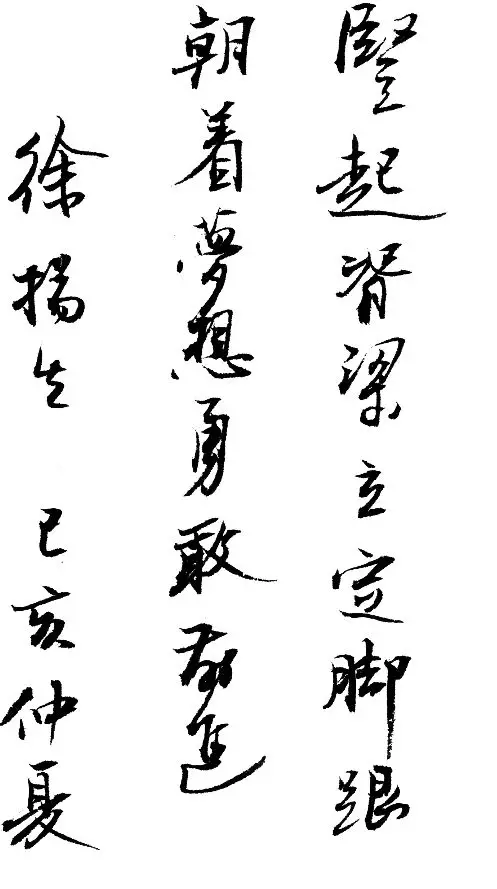 豎起脊梁立定脚跟
朝着夢想勇敢前進
徐揚生 己亥仲夏